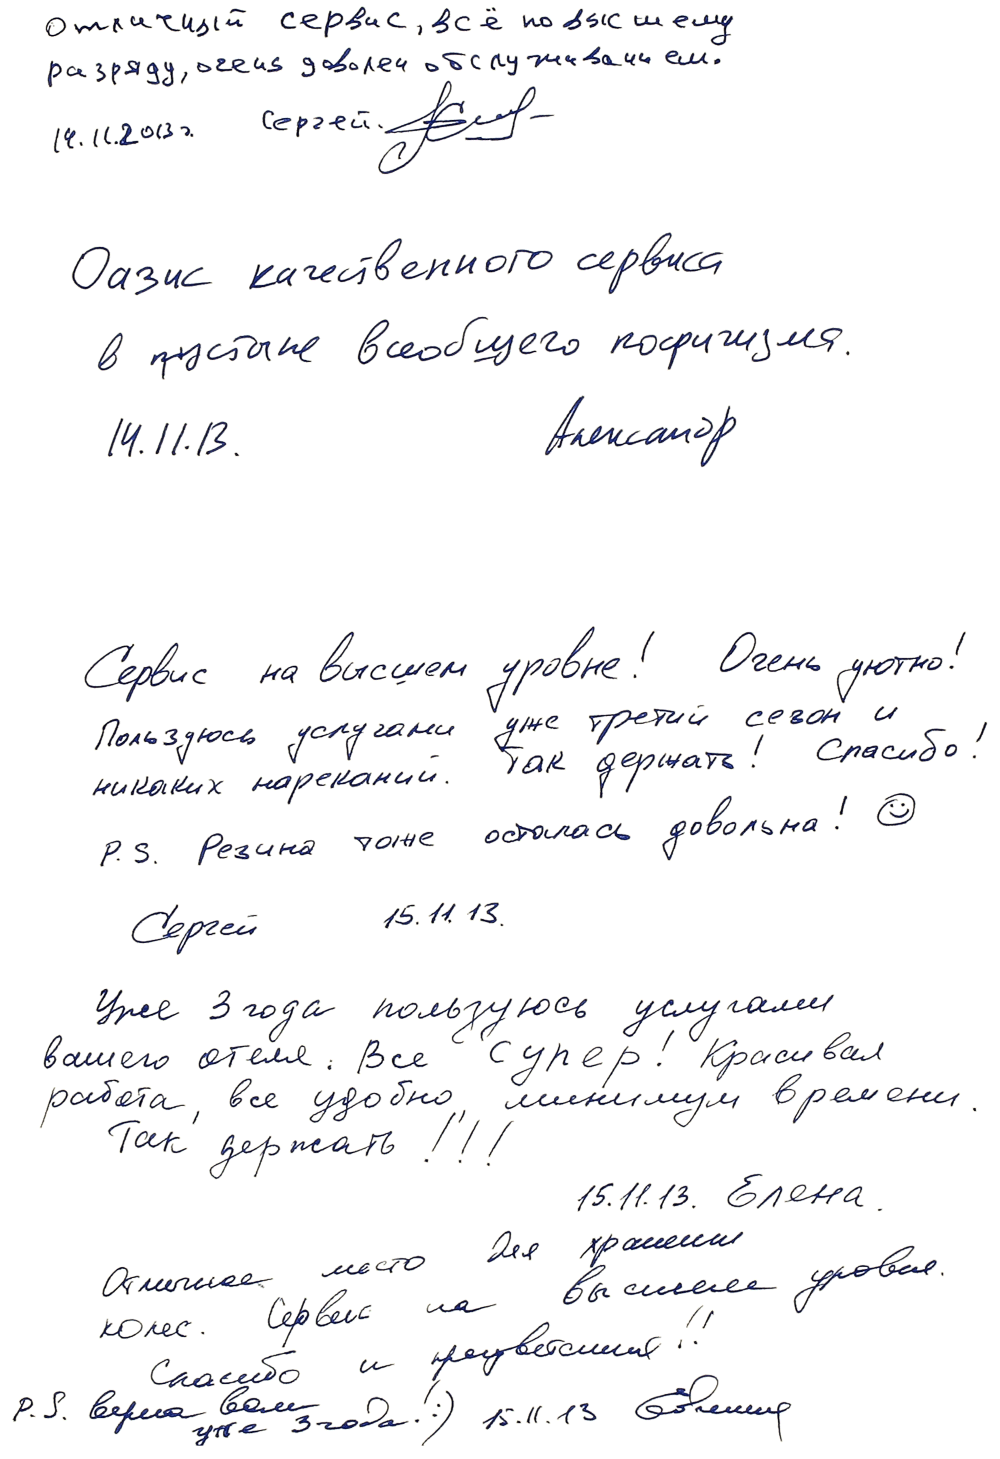 отличный сервис, всё по высшему
разряду, очень доволен обслуживанием.
14.11.2013г. Сергей.
Оазис качественного сервиса
в пустыне всеобщего пофигизма.
14.11.13. Александр
Сервис на высшем уровне! Очень уютно!
Пользуюсь услугами уже третий сезон и
никаких нареканий. Так держать! Спасибо!
P.S. Резина тоже осталась довольна!
Сергей 15.11.13.
Уже 3 года пользуюсь услугами
вашего отеля. Все супер! Красивая
работа, все удобно, минимум времени.
Так держать!!!
15.11.13. Елена.
Отличное место для хранения
колес. Сервис на высшем уровне.
Спасибо и процветания!!
P.S. верна вам
уже 3 года! :) 15.11.13